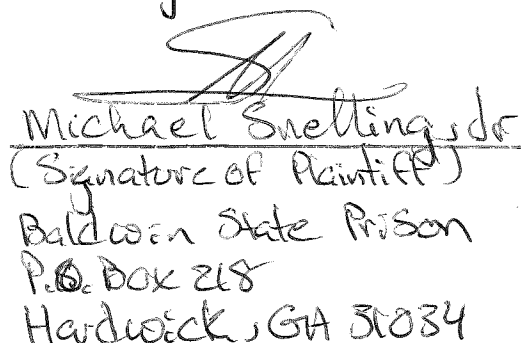 Michael Snelling, Jr
(Signature of Plaintiff)
Baldwin State Prison
P.O. Box 218
Hardwick, GA 31034